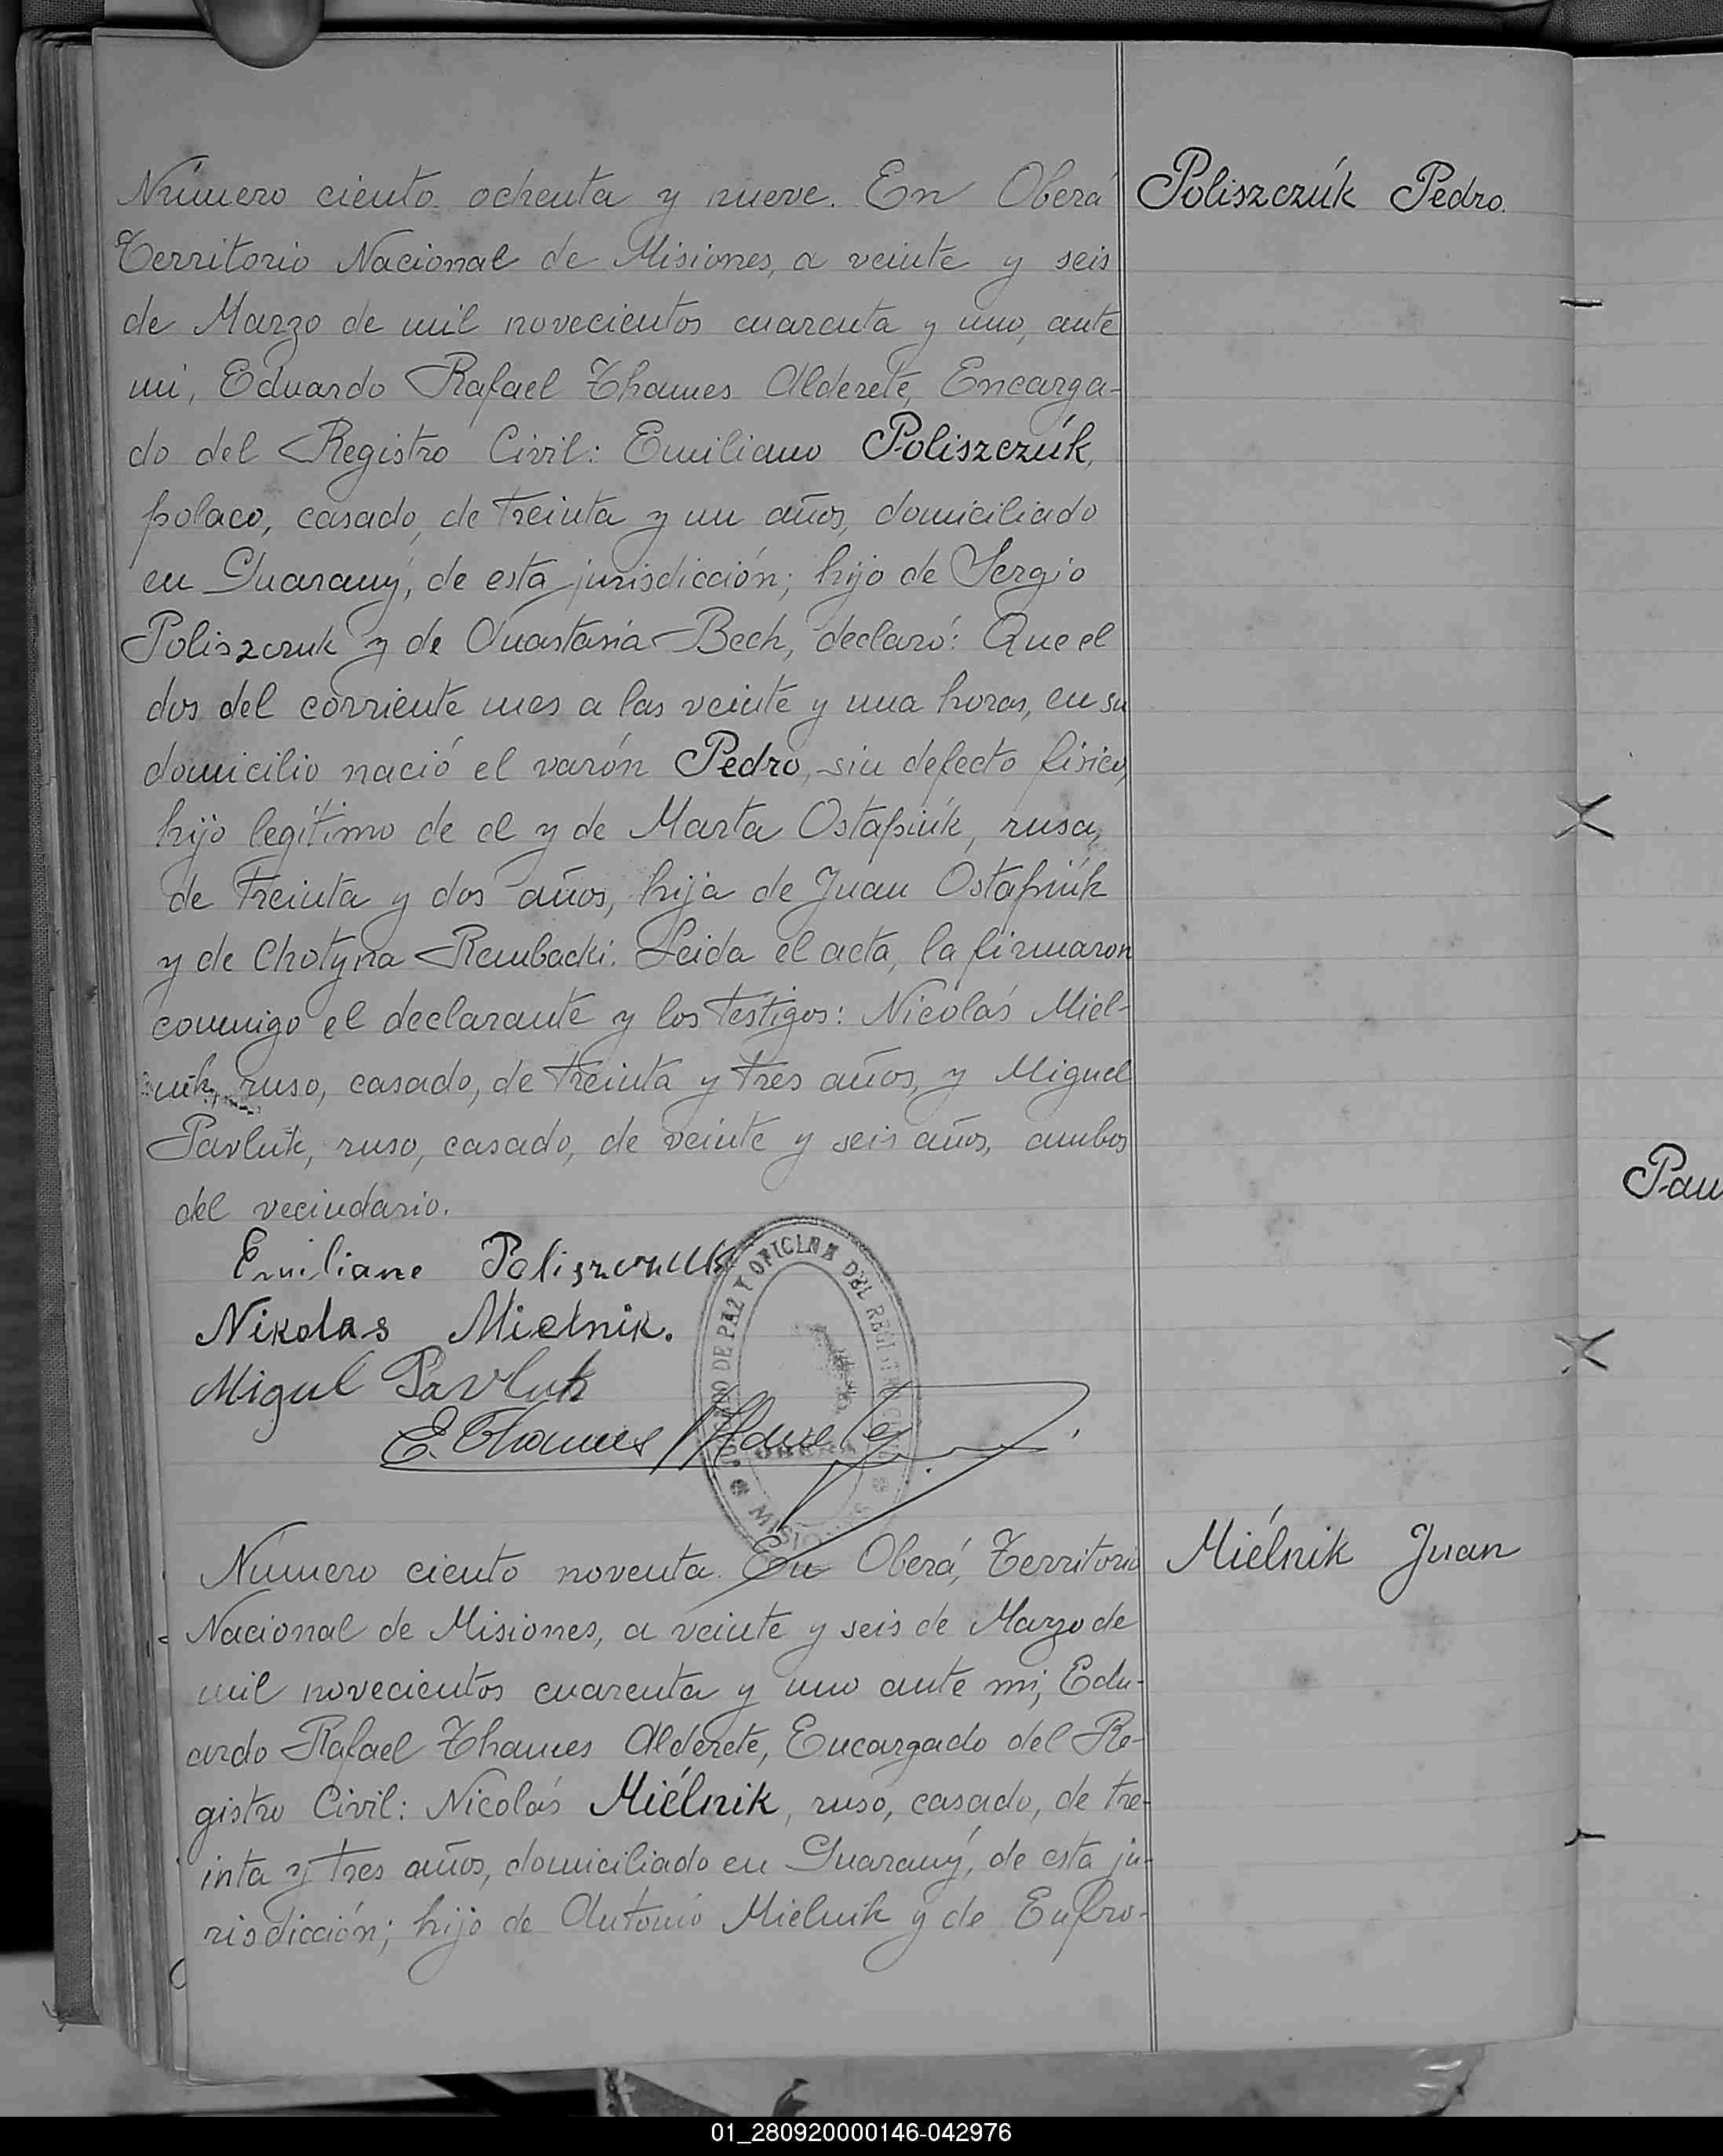 Número ciento ochenta y nueve. En Oberá
Poliszczúk Pedro.
Territorio Nacional de Misiones, a veinte y seis
de Marzo de mil novecientos cuarenta y uno, ante
mi, Eduardo Rafael Thames Alderete, Encarga-
do del Registro Civil: Emiliano Poliszczúk,
polaco, casado, de treinta y un años, domiciliado
en Guarany, de esta jurisdicción; hijo de Sergio
Poliszczuk y de Anastasia Bech, declaró: Que el
dos del corriente mes a las veinte y una horas, en su
domicilio nació el varón Pedro, sin defecto fisico,
hijo legítimo de el y de Marta Ostapiúk, rusa,
de treinta y dos años, hija de Juan Ostapiúk
y de Chotyna Rembacki. Leida el acta, la firmaron
conmigo el declarante y los testigos: Nicolás Miel-
nik, ruso, casado, de treinta y tres años, y Miguel
Pavluk, ruso, casado, de veinte y seis años, ambos
del vecindario.
Emiliano Poliszczuk
Nikolas Mielnik.
Migul Pavluk
E. Thames Alderete
JUZGADO DE PAZ Y OFICINA DEL REGISTRO CIVIL
OBERA
MISIONES
Número ciento noventa. En Oberá, Territorio
Miélnik Juan
Nacional de Misiones, a veinte y seis de Marzo de
mil novecientos cuarenta y uno ante mi, Edu-
ardo Rafael Thames Alderete, Encargado del Re-
gistro Civil: Nicolás Miélnik, ruso, casado, de tre-
inta y tres años, domiciliado en Guarany, de esta ju-
risdicción; hijo de Antonio Mielnik y de Eufro-
Pau
01_280920000146-042976